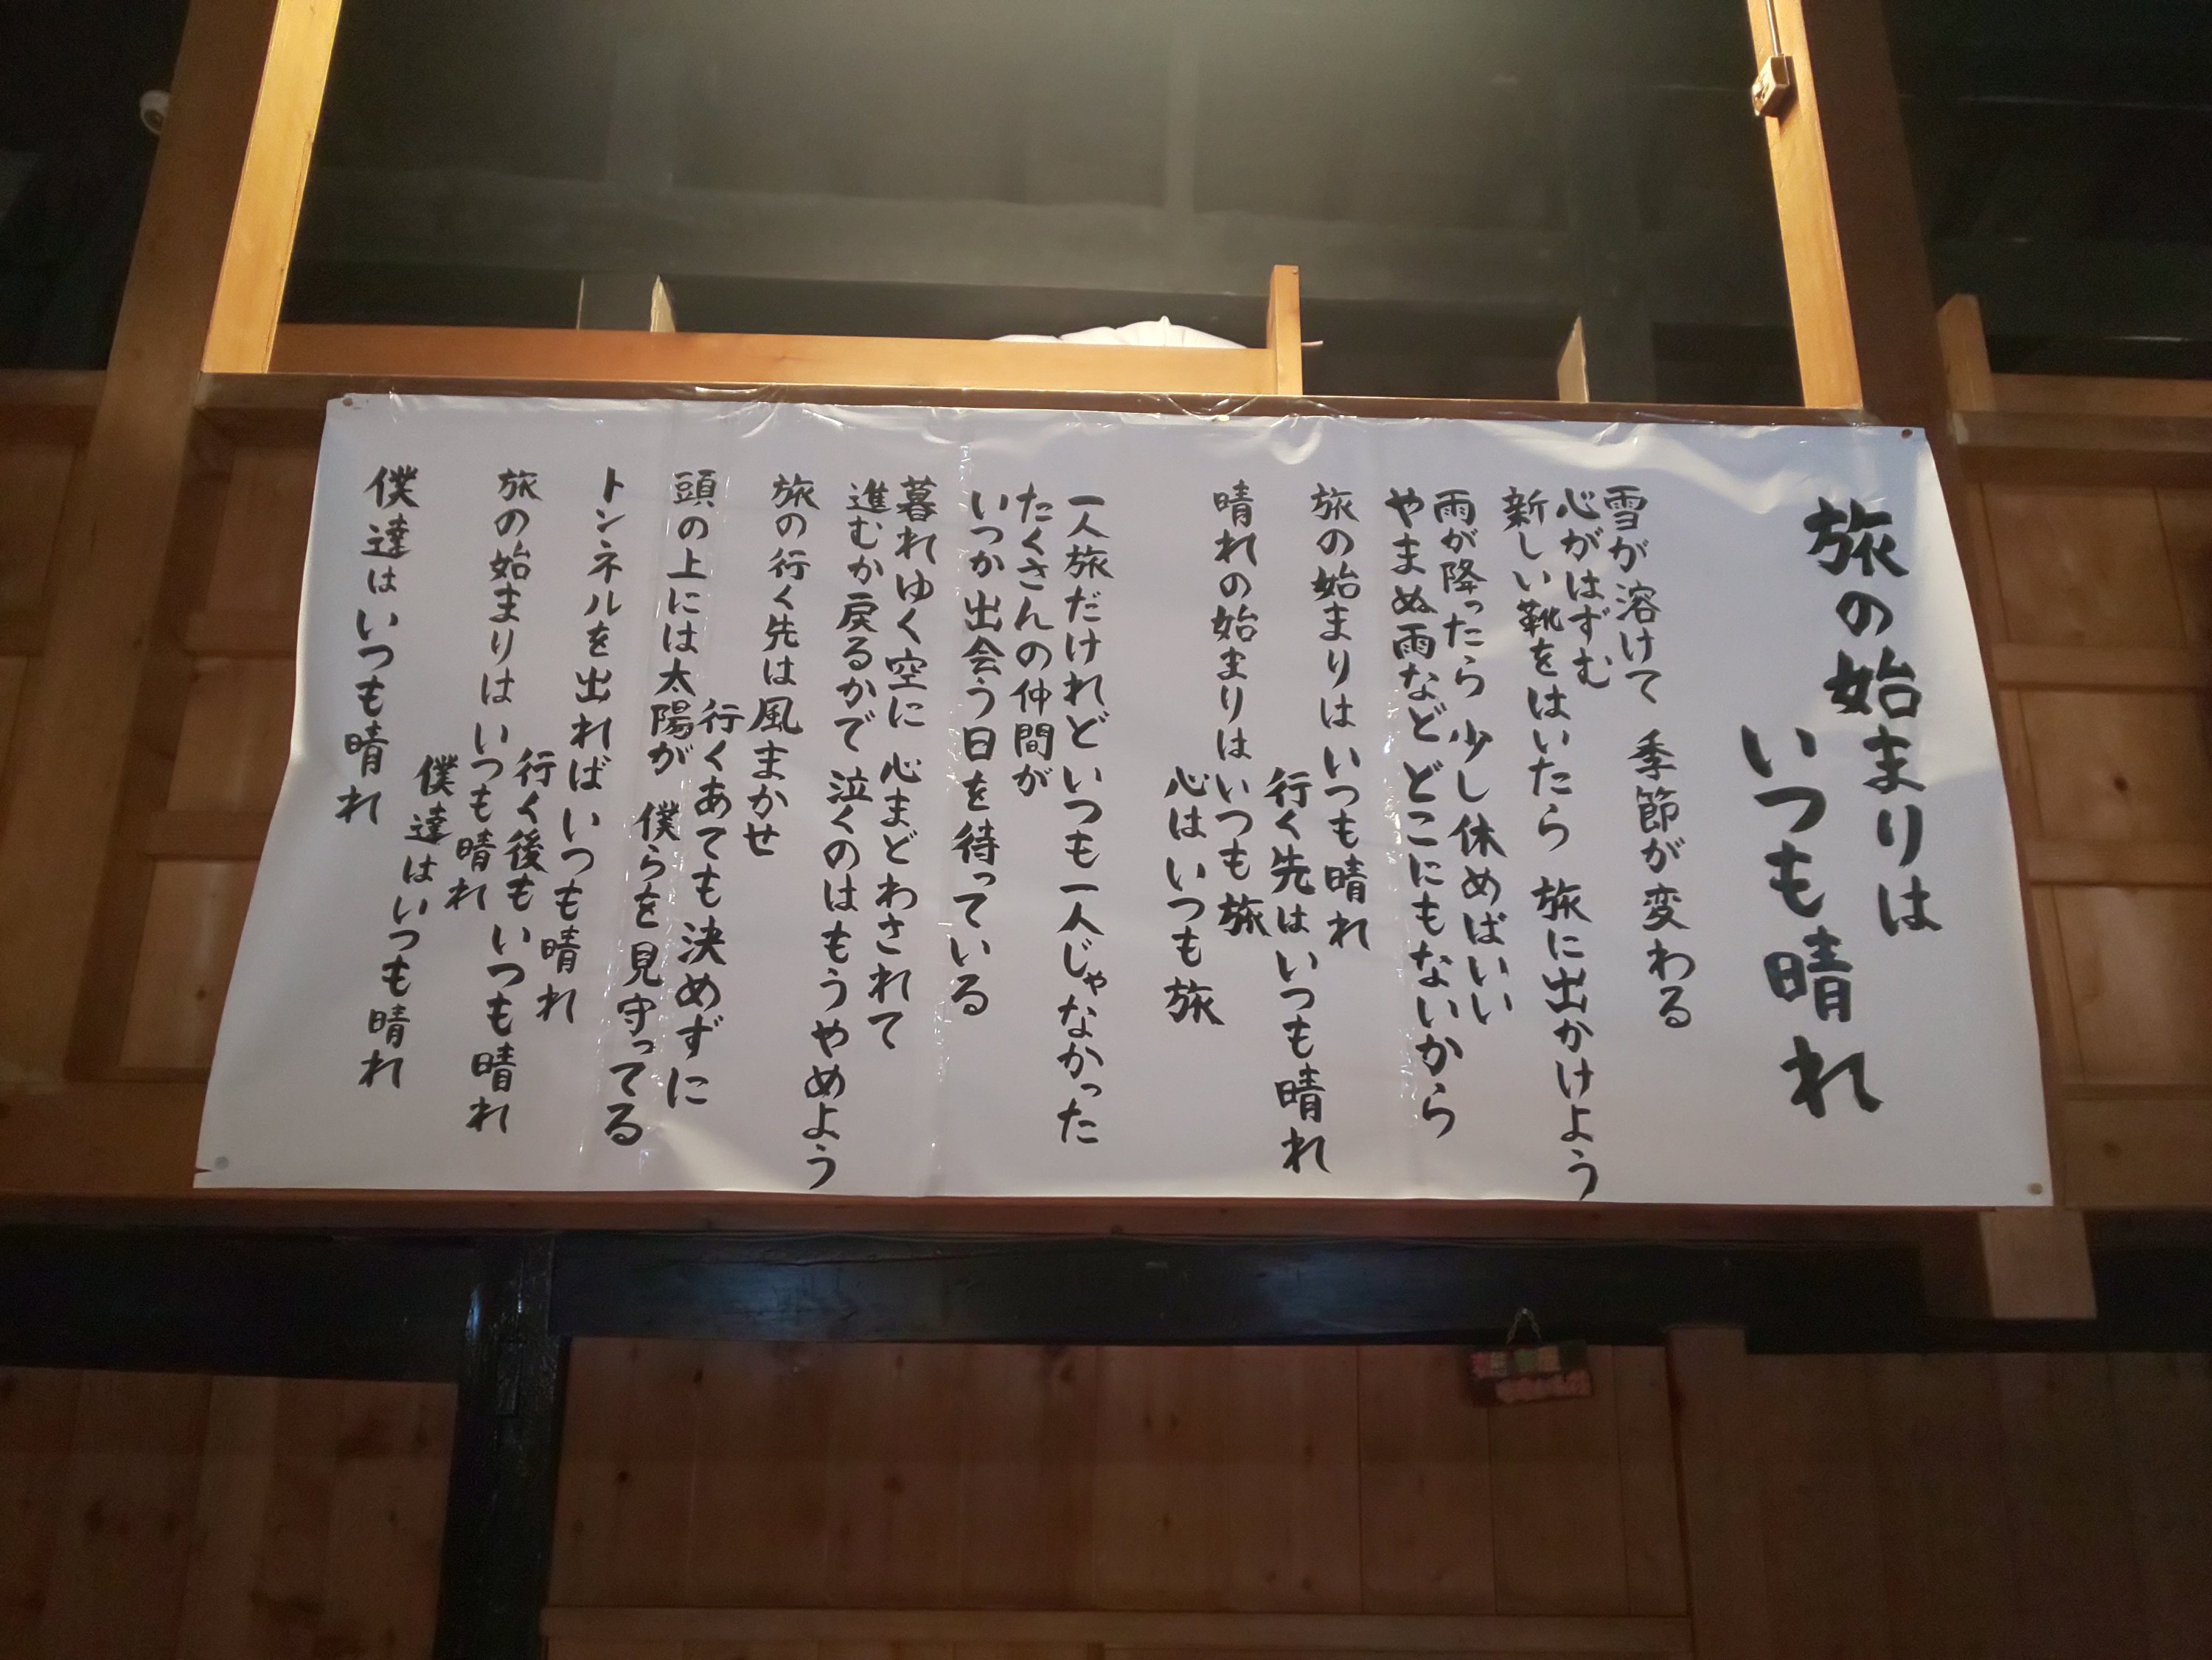 旅の始まりは
いつも晴れ
雪が溶けて 季節が変わる
心がはずむ
新しい靴をはいたら 旅に出かけよう
雨が降ったら 少し休めばいい
やまぬ雨など どこにもないから
旅の始まりは いつも晴れ
行く先は いつも晴れ
晴れの始まりは いつも旅
心は いつも旅
一人旅だけれど いつも一人じゃなかった
たくさんの仲間が
いつか出会う日を待っている
暮れゆく空に 心まどわされて
進むか戻るかで 泣くのはもうやめよう
旅の行く先は 風まかせ
行くあても決めずに
頭の上には太陽が 僕らを見守ってる
トンネルを出れば いつも晴れ
行く後も いつも晴れ
旅の始まりは いつも晴れ
僕達は いつも晴れ
僕達は いつも晴れ